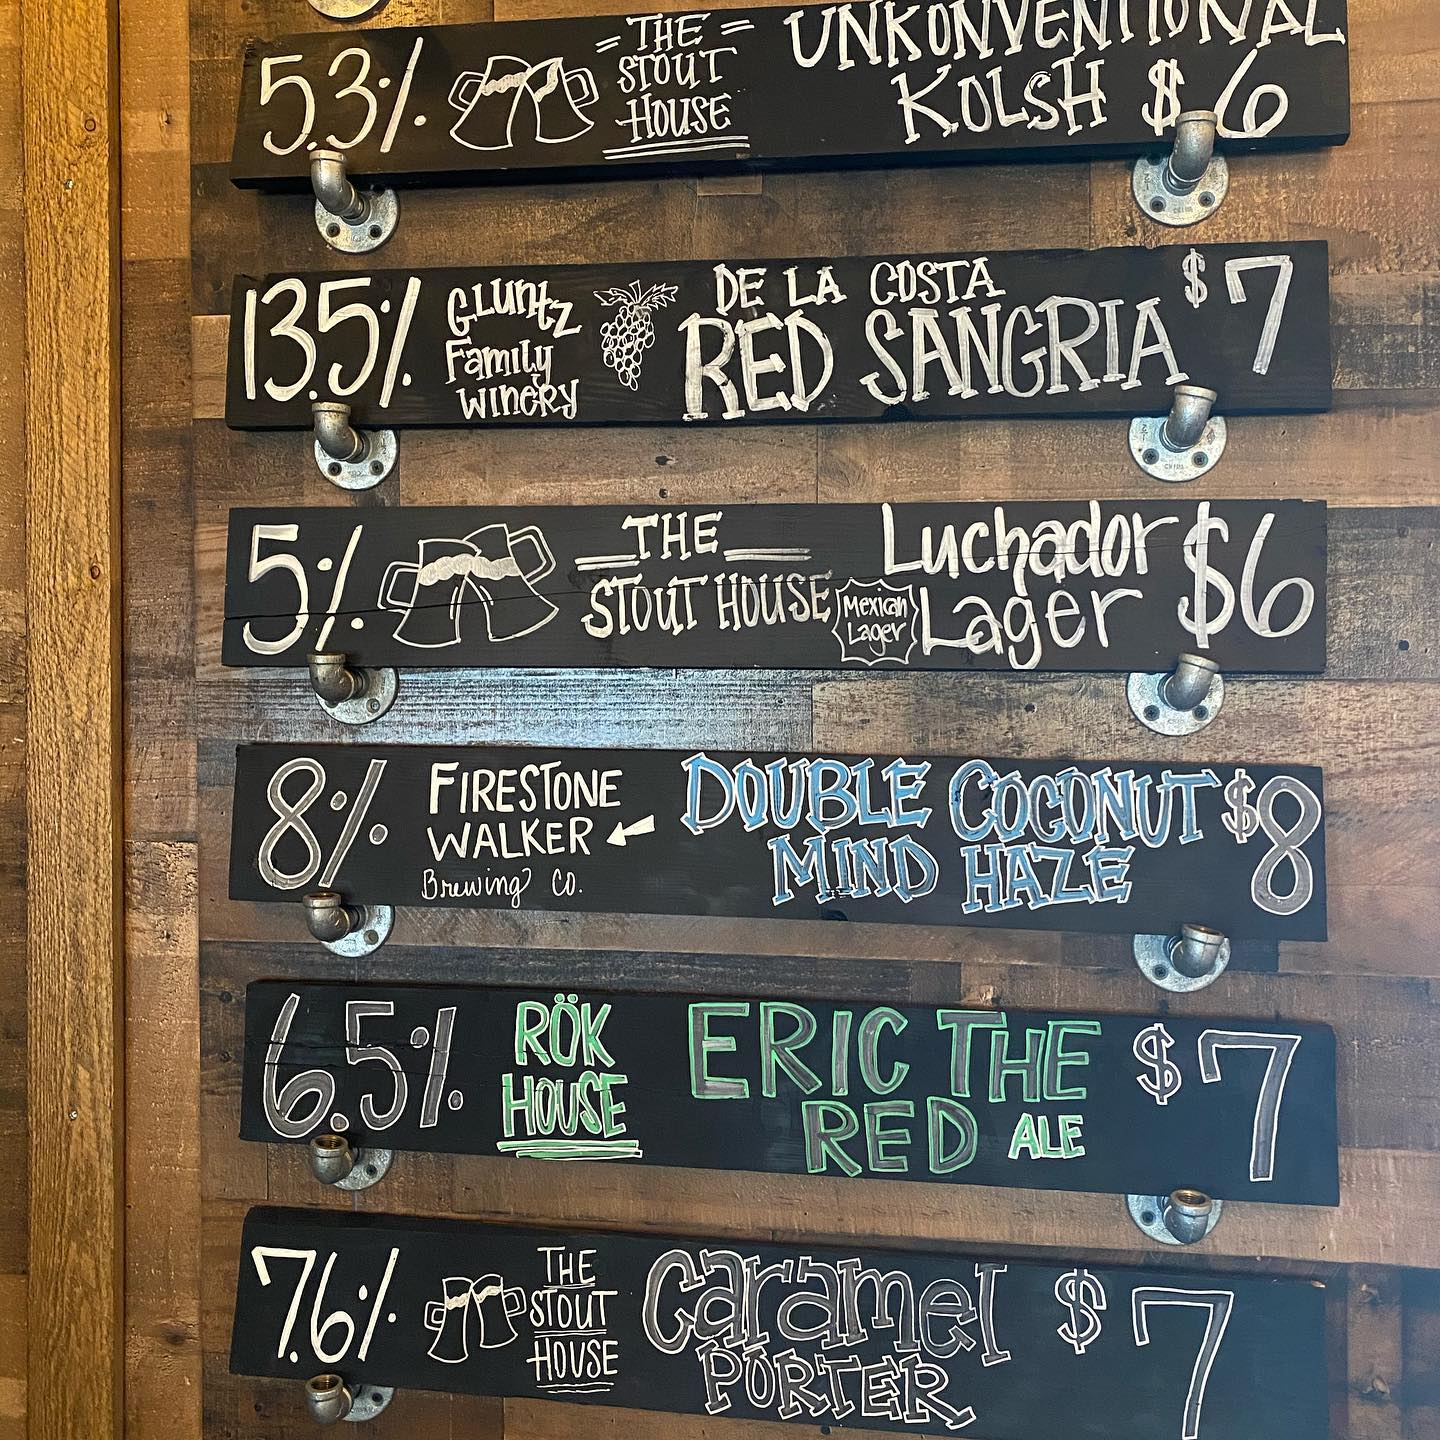 5.3%
THE
STOUT
HOUSE
UNKONVENTIONAL
KOLSH $6
13.5%
Gluntz
Family
Winery
DE LA COSTA
RED SANGRIA
$7
5%
THE
STOUT HOUSE
Mexican
Lager
Luchador
Lager
$6
8%
FIRESTONE
WALKER
Brewing Co.
DOUBLE COCONUT
MIND HAZE
$8
6.5%
RÖK
HOUSE
ERIC THE
RED ALE
$7
7.6%
THE
STOUT
HOUSE
Caramel
PORTER
$7